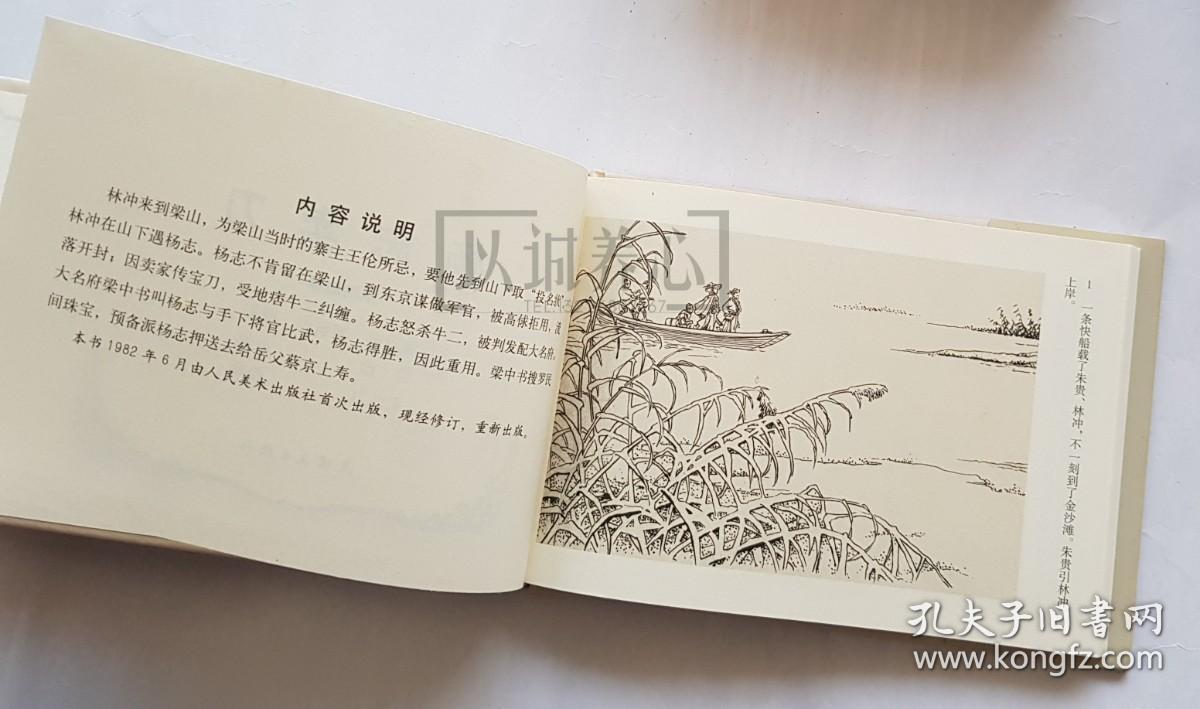 内容说明
林冲来到梁山，为梁山当时的寨主王伦所忌，要他先到山下取“投名状”
林冲在山下遇杨志。杨志不肯留在梁山，到东京谋做军官，被高俅拒用，流
落开封；因卖家传宝刀，受地痞牛二纠缠。杨志怒杀牛二，被判发配大名府。
大名府梁中书叫杨志与手下将官比武，杨志得胜，因此重用。梁中书搜罗民
间珠宝，预备派杨志押送去给岳父蔡京上寿。
本书1982年6月由人民美术出版社首次出版，现经修订，重新出版。
以诚养心
1 一条快船载了朱贵、林冲，不一刻到了金沙滩。朱贵引林冲
上岸。
孔夫子旧书网
www.kongfz.com